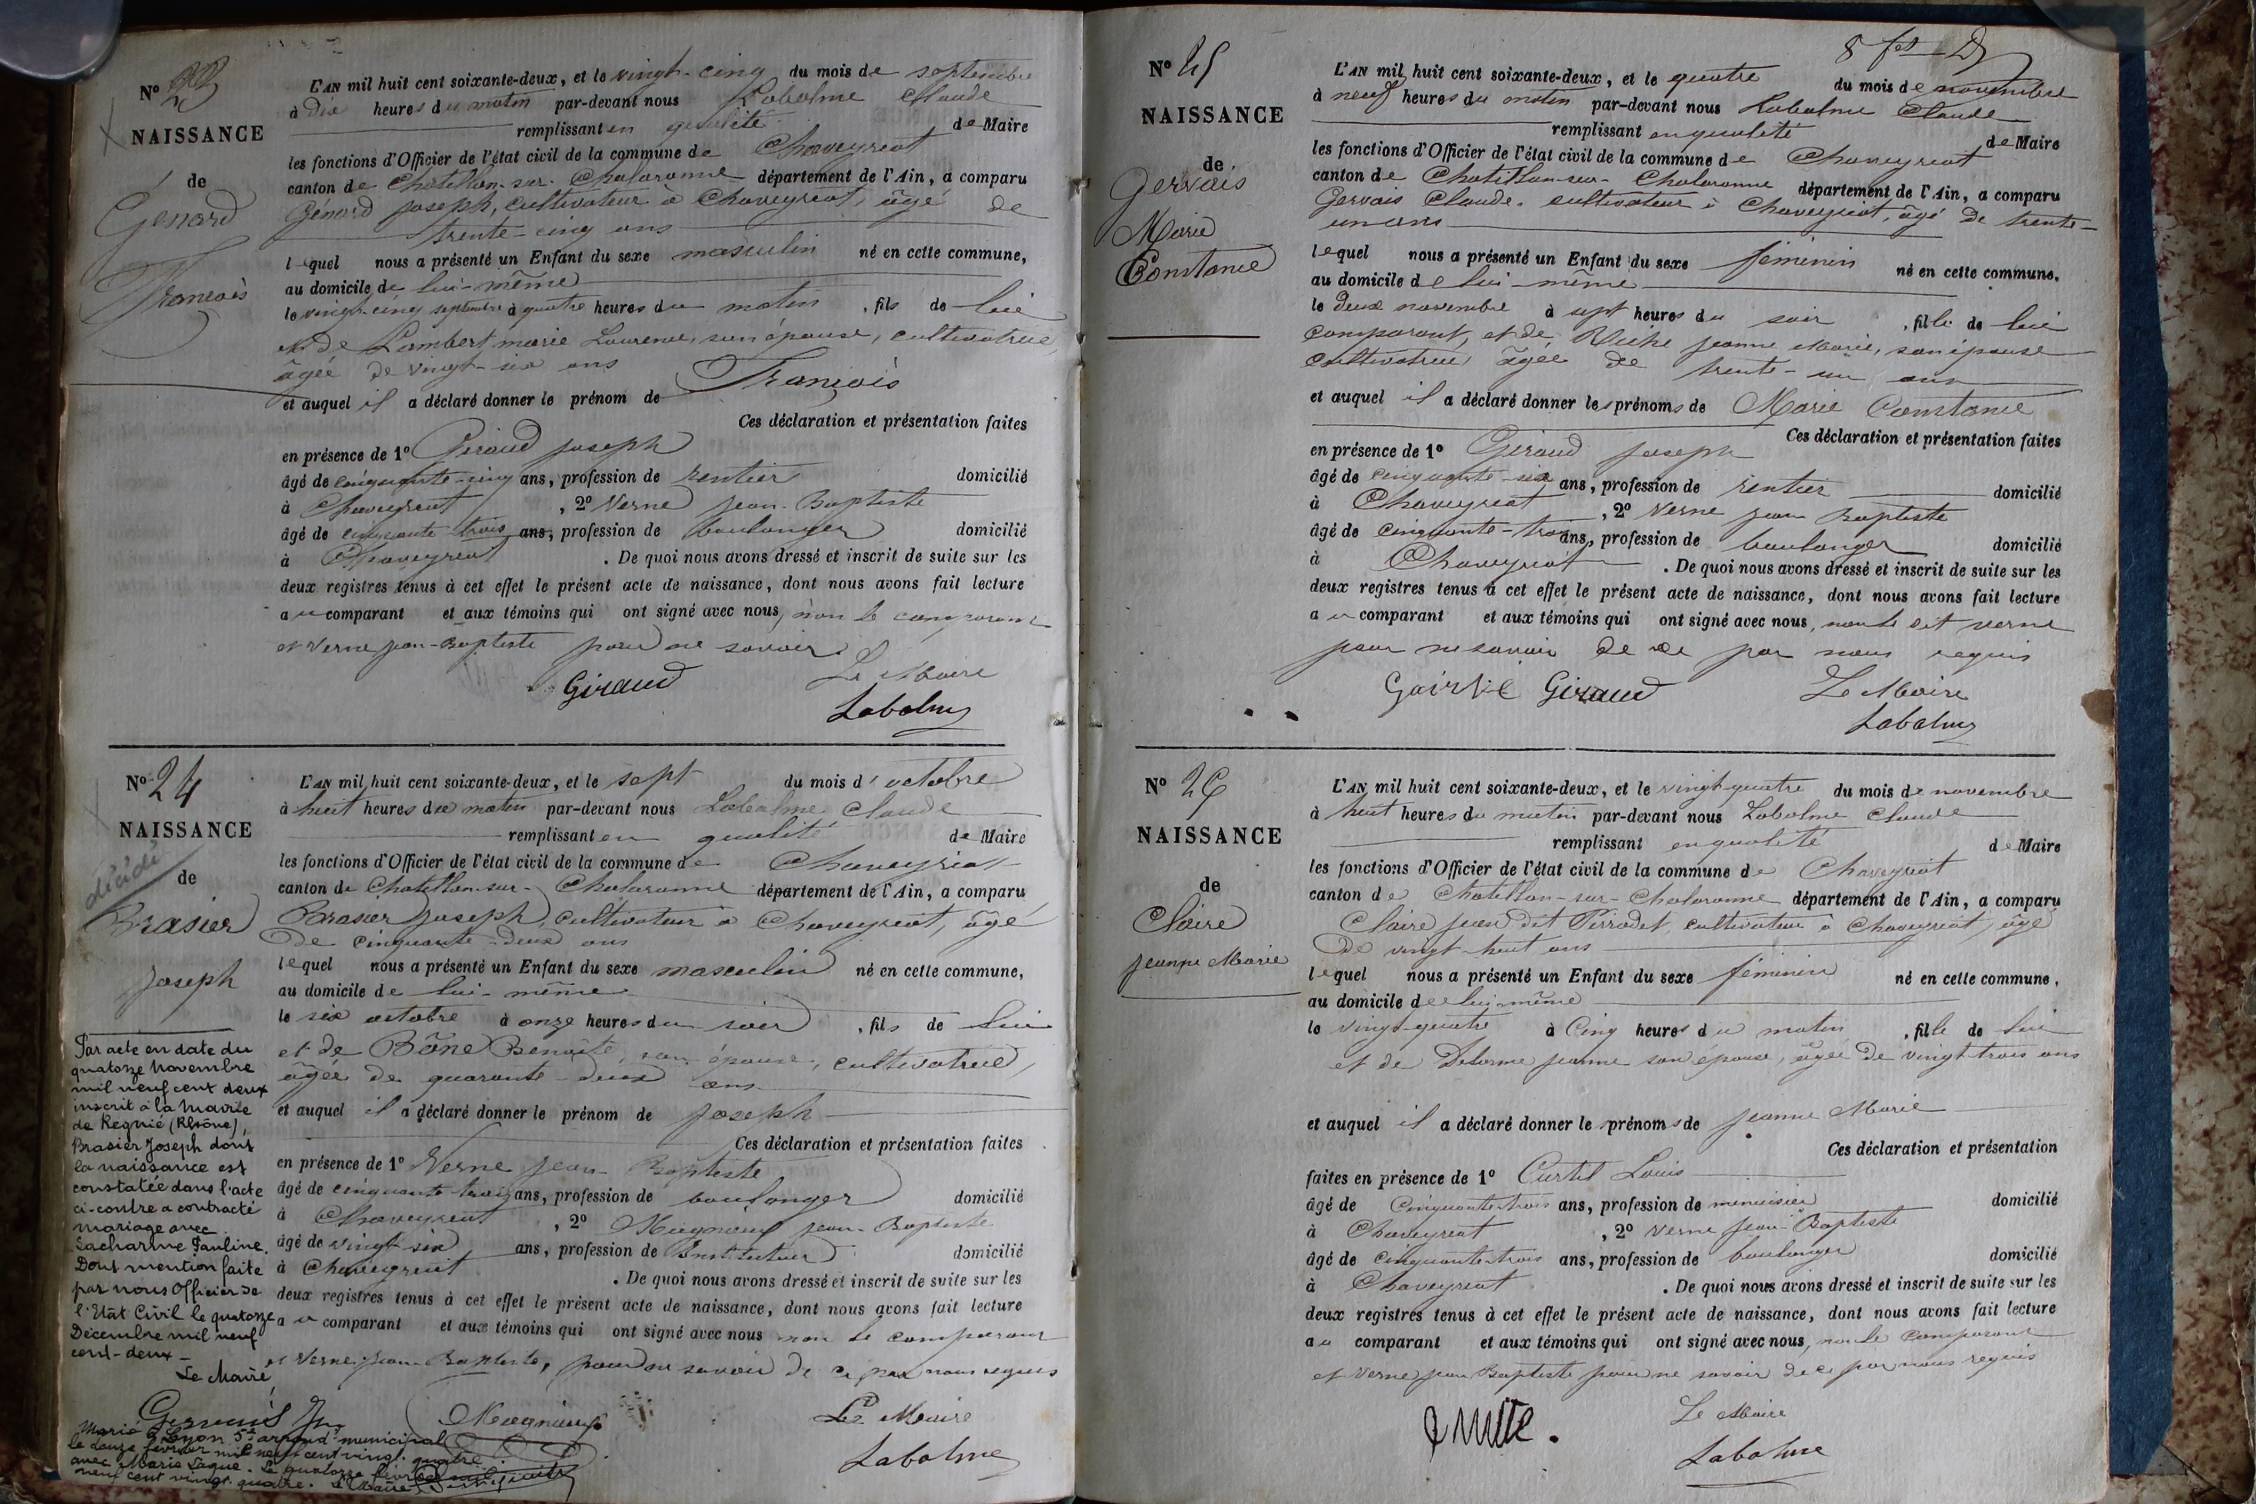 N° 23
NAISSANCE
de
Génard
François
L'AN mil huit cent soixante-deux, et le vingt-cinq du mois de septembre
à dix heures du matin par-devant nous Labalme Claude
remplissant en qualité de Maire
les fonctions d'Officier de l'état civil de la commune de Chaveyriat
canton de Chatillon-sur-Chalaronne département de l'Ain, a comparu
Génard Joseph, cultivateur à Chaveyriat, âgé de
trente-cinq ans
lequel nous a présenté un Enfant du sexe masculin né en cette commune,
au domicile de lui-même
le vingt-cinq septembre à quatre heures du matin, fils de lui
et de Lambert marie Laurence, son épouse, cultivatrice,
âgée de vingt-six ans
et auquel il a déclaré donner le prénom de François
Ces déclaration et présentation faites
en présence de 1° Giraud joseph
âgé de cinquante-cinq ans, profession de rentier domicilié
à Chaveyriat, 2° Verne jean-Baptiste
âgé de cinquante-trois ans, profession de boulanger domicilié
à Chaveyriat. De quoi nous avons dressé et inscrit de suite sur les
deux registres tenus à cet effet le présent acte de naissance, dont nous avons fait lecture
au comparant et aux témoins qui ont signé avec nous, non le comparant
et Verne jean-Baptiste pour ne savoir
Giraud Le Maire
Labalme
N° 24
NAISSANCE
décédé
de
Brasier
Joseph
L'AN mil huit cent soixante-deux, et le sept du mois d'octobre
à huit heures du matin par-devant nous Labalme Claude
remplissant en qualité de Maire
les fonctions d'Officier de l'état civil de la commune de Chaveyriat
canton de Chatillon-sur-Chalaronne département de l'Ain, a comparu
Brasier Joseph, cultivateur à Chaveyriat, âgé
de cinquante-deux ans
lequel nous a présenté un Enfant du sexe masculin né en cette commune,
au domicile de lui-même
le six octobre à onze heures du soir, fils de lui
et de Bône Benoîte, son épouse, cultivatrice,
âgée de quarante-deux ans
et auquel il a déclaré donner le prénom de joseph
Ces déclaration et présentation faites
en présence de 1° Verne jean-Baptiste
âgé de cinquante-trois ans, profession de boulanger domicilié
à Chaveyriat, 2° jean-Baptiste
âgé de vingt-six ans, profession de Instituteur domicilié
à Chaveyriat. De quoi nous avons dressé et inscrit de suite sur les
deux registres tenus à cet effet le présent acte de naissance, dont nous avons fait lecture
au comparant et aux témoins qui ont signé avec nous non le comparant
et Verne jean-Baptiste, pour ne savoir de ce par nous requis
Le Maire
Labalme
Par acte en date du
quatorze Novembre
mil neuf cent deux
inscrit à la Mairie
de Regnié (Rhône),
Brasier Joseph dont
la naissance est
constatée dans l'acte
ci-contre a contracté
mariage avec
Lacharme Pauline.
Dont mention faite
par nous Officier de
l'Etat Civil le quatorze
Décembre mil neuf
cent-deux
Le Maire
Marié à Lyon 5e arrond. municipal
le douze février mil neuf cent vingt-quatre
avec Marie Laque. Le quatorze février mil
neuf cent vingt-quatre. Le Maire
N° 25
NAISSANCE
de
Gervais
Marie
Constance
L'AN mil huit cent soixante-deux, et le quatre du mois de novembre
à neuf heures du matin par-devant nous Labalme Claude
remplissant en qualité de Maire
les fonctions d'Officier de l'état civil de la commune de Chaveyriat
canton de Chatillon-sur-Chalaronne département de l'Ain, a comparu
Gervais Claude, cultivateur à Chaveyriat, âgé de trente-
un ans
lequel nous a présenté un Enfant du sexe féminin né en cette commune,
au domicile de lui-même
le deux novembre à sept heures du soir, fille de lui
comparant, et de jeanne Marie, son épouse
cultivatrice âgée de trente-un ans
et auquel il a déclaré donner les prénoms de Marie Constance
Ces déclaration et présentation faites
en présence de 1° Giraud joseph
âgé de cinquante-six ans, profession de rentier domicilié
à Chaveyriat, 2° Verne jean Baptiste
âgé de cinquante-trois ans, profession de boulanger domicilié
à Chaveyriat. De quoi nous avons dressé et inscrit de suite sur les
deux registres tenus à cet effet le présent acte de naissance, dont nous avons fait lecture
au comparant et aux témoins qui ont signé avec nous, non le dit verne
pour ne savoir de ce par nous requis
Giraud Le Maire
Labalme
N° 26
NAISSANCE
de
Claire
jeanne Marie
L'AN mil huit cent soixante-deux, et le vingt-quatre du mois de novembre
à huit heures du matin par-devant nous Labalme Claude
remplissant en qualité de Maire
les fonctions d'Officier de l'état civil de la commune de Chaveyriat
canton de Chatillon-sur-Chalaronne département de l'Ain, a comparu
Claire jean dit Pirrodet, cultivateur à Chaveyriat, âgé
de vingt-huit ans
lequel nous a présenté un Enfant du sexe féminin né en cette commune,
au domicile de lui-même
le vingt-quatre à cinq heures du matin, fille de lui
et de Delorme jeanne son épouse, âgée de vingt-trois ans
et auquel il a déclaré donner les prénoms de jeanne Marie
Ces déclaration et présentation
faites en présence de 1° Curtil Louis
âgé de cinquante-trois ans, profession de menuisier domicilié
à Chaveyriat, 2° Verne jean-Baptiste
âgé de cinquante-trois ans, profession de boulanger domicilié
à Chaveyriat. De quoi nous avons dressé et inscrit de suite sur les
deux registres tenus à cet effet le présent acte de naissance, dont nous avons fait lecture
au comparant et aux témoins qui ont signé avec nous, non le comparant
et Verne jean Baptiste pour ne savoir de ce par nous requis
Le Maire
Labalme